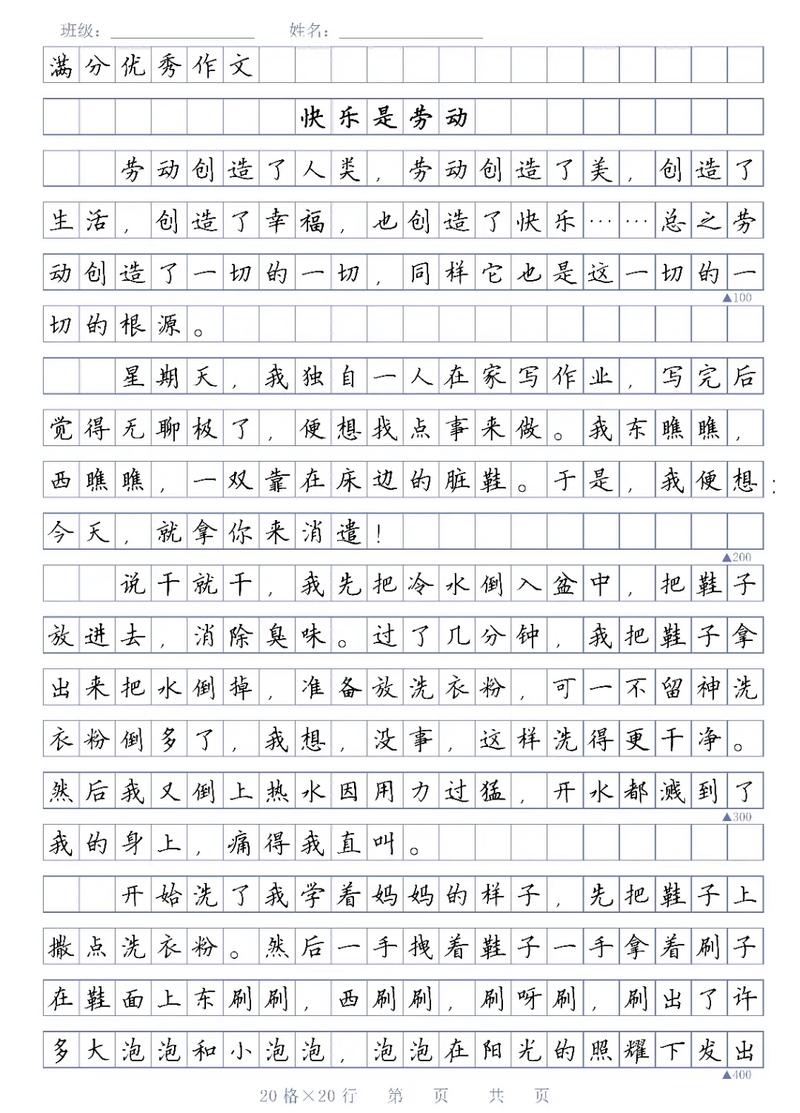 班级： 姓名：
满分优秀作文
快乐是劳动
劳动创造了人类，劳动创造了美，创造了
生活，创造了幸福，也创造了快乐……总之劳
动创造了一切的一切，同样它也是这一切的一
▲100
切的根源。
星期天，我独自一人在家写作业，写完后
觉得无聊极了，便想找点事来做。我东瞧瞧，
西瞧瞧，一双靠在床边的脏鞋。于是，我便想：
今天，就拿你来消遣！
▲200
说干就干，我先把冷水倒入盆中，把鞋子
放进去，消除臭味。过了几分钟，我把鞋子拿
出来把水倒掉，准备放洗衣粉，可一不留神洗
衣粉倒多了，我想，没事，这样洗得更干净。
然后我又倒上热水因用力过猛，开水都溅到了
▲300
我的身上，痛得我直叫。
开始洗了我学着妈妈的样子，先把鞋子上
撒点洗衣粉。然后一手拽着鞋子一手拿着刷子
在鞋面上东刷刷，西刷刷，刷呀刷，刷出了许
多大泡泡和小泡泡，泡泡在阳光的照耀下发出
▲400
20格×20行 第 页 共 页